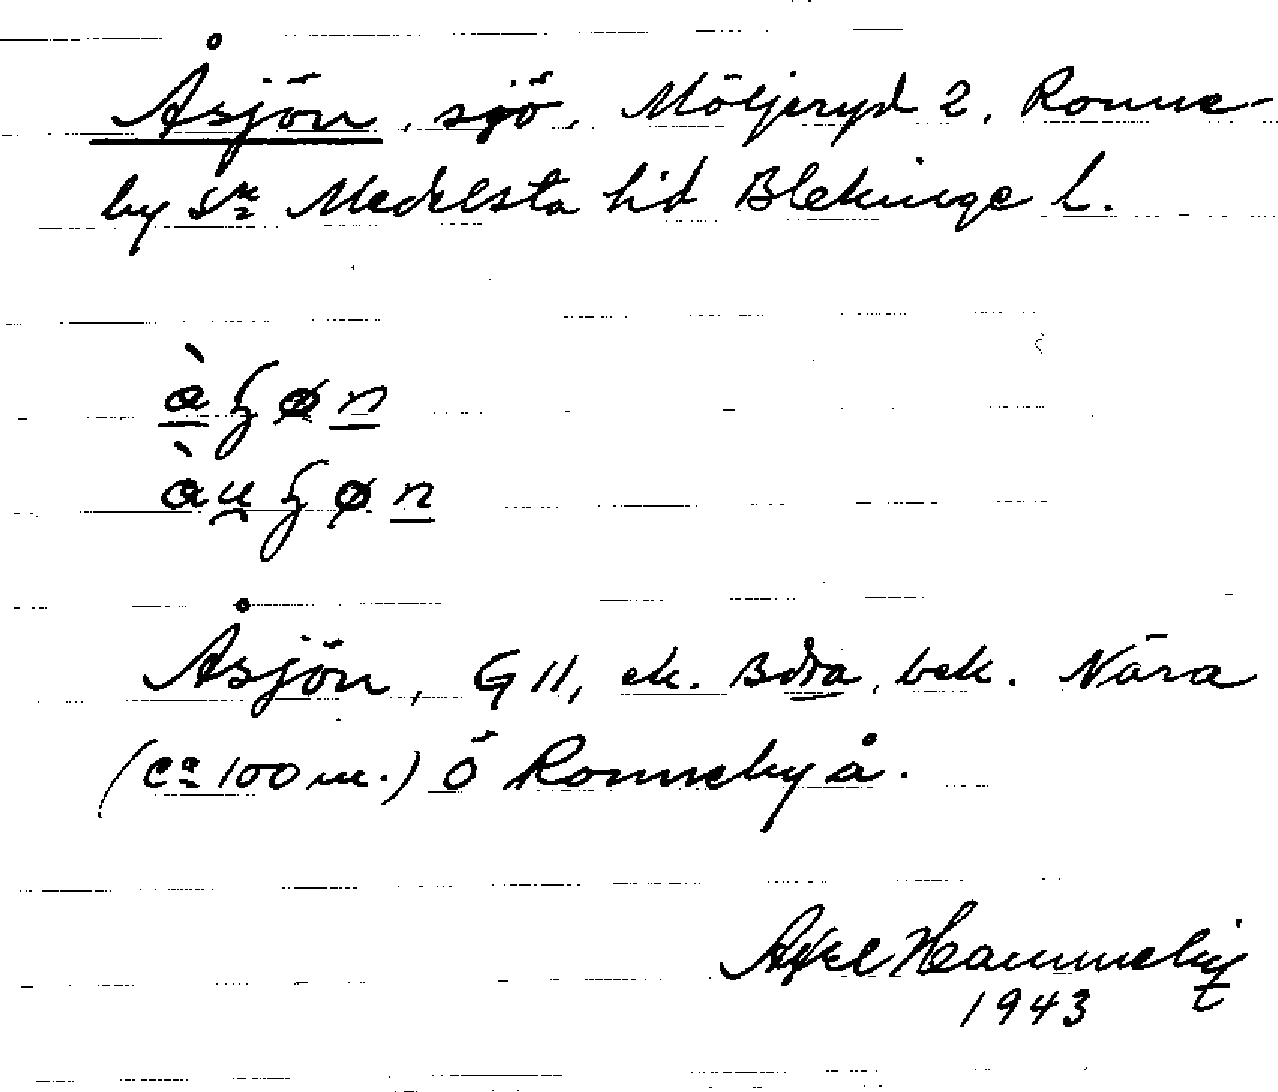 Åsjön, sjö, Möljeryd 2, Ronne-
by sn Medelsta hd Blekinge l.
àʃøn
àuʃøn
Åsjön, G 11, ek. Bdra, bek. Nära
(ca 100 m.) Ö Ronneby å.
Axel
1943